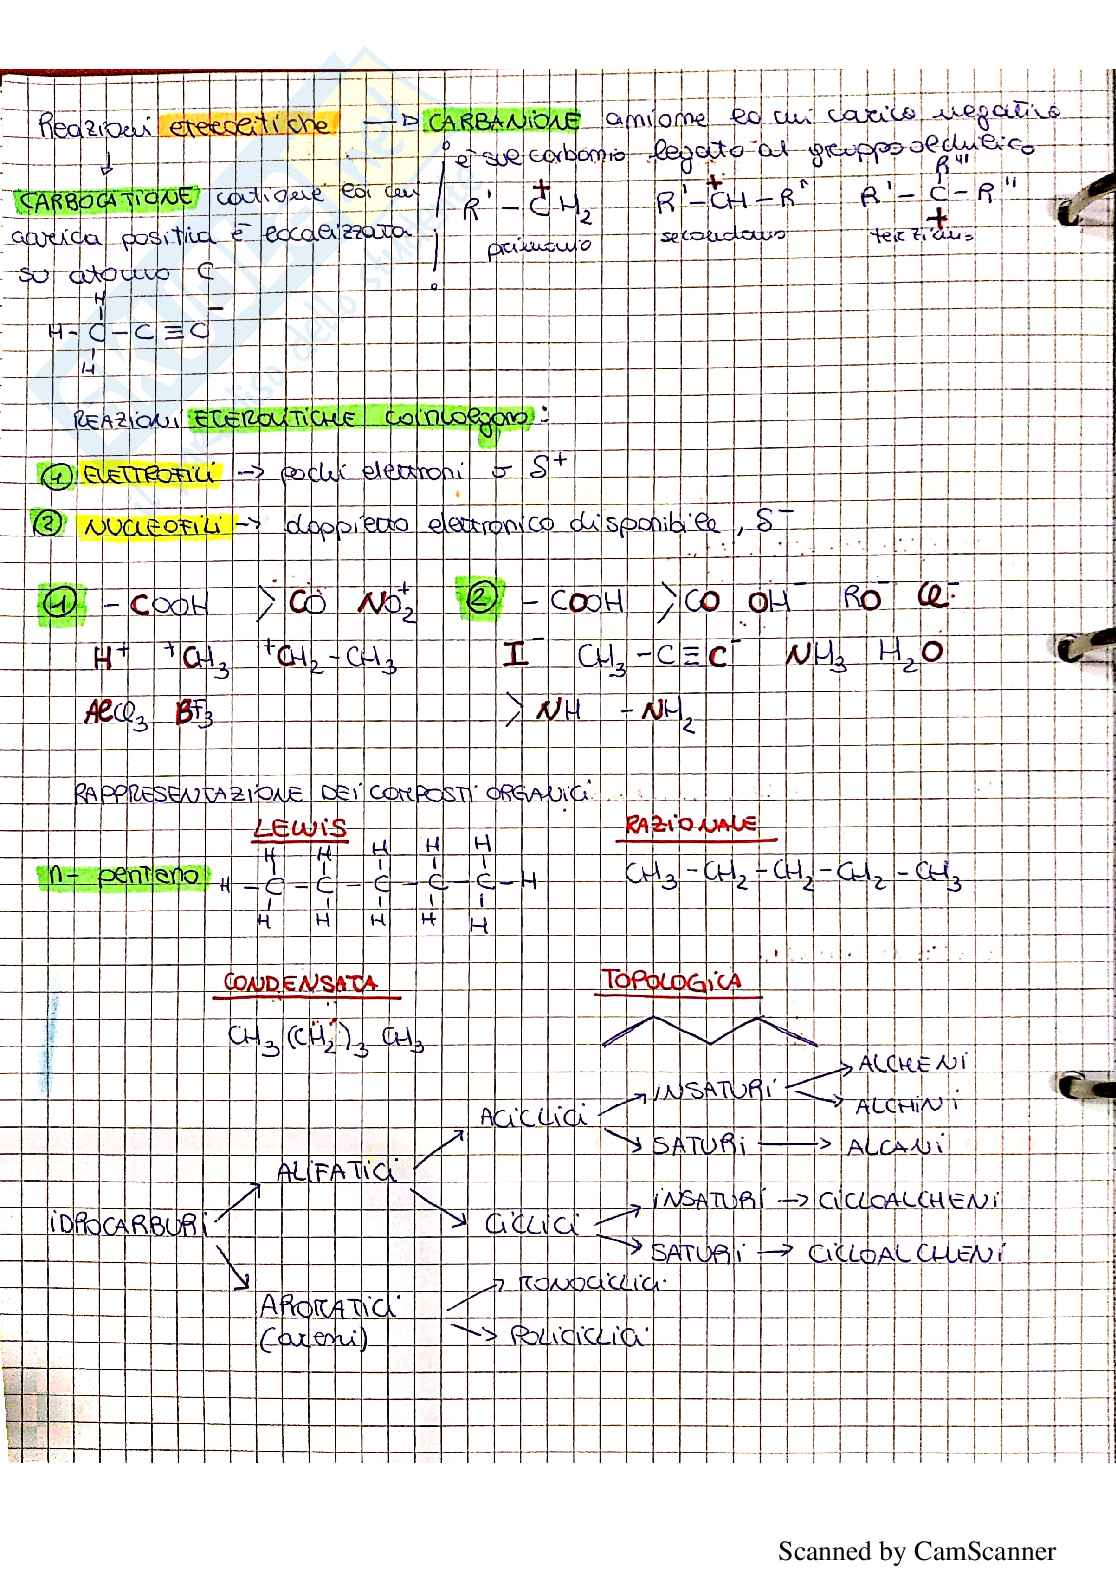 Reazioni eterolitiche → CARBANIONE anione la cui carica negativa
è sul carbonio legato al gruppo
↓
CARBOCATIONE catione la cui
carica positiva è localizzata
su atomo C
R' - C⁺H₂ R' - C⁺H - R'' R' - C⁺ - R'' R'''
primario secondario terziario
H
H - C - C ≡ C⁻
H
REAZIONI ETEROLITICHE coinvolgono:
① ELETTROFILI → pochi elettroni o δ+
② NUCLEOFILI → doppietto elettronico disponibile, δ-
① - COOH >CO NO₂⁺ ② - COOH >CO OH⁻ RO⁻ Cl⁻
H⁺ ⁺CH₃ ⁺CH₂ - CH₃ I⁻ CH₃ - C ≡ C⁻ NH₃ H₂O
AlCl₃ BF₃ >NH - NH₂
RAPPRESENTAZIONE DEI COMPOSTI ORGANICI
LEWIS RAZIONALE
H H H H H
n- pentano H - C - C - C - C - C - H CH₃ - CH₂ - CH₂ - CH₂ - CH₃
H H H H H
CONDENSATA TOPOLOGICA
CH₃ (CH₂)₃ CH₃
IDROCARBURI
ALIFATICI
ACICLICI
INSATURI → ALCHENI
ALCHINI
SATURI → ALCANI
CICLICI
INSATURI → CICLOALCHENI
SATURI → CICLOALCHENI
AROMATICI
(areni)
MONOCICLICI
POLICICLICI
Scanned by CamScanner